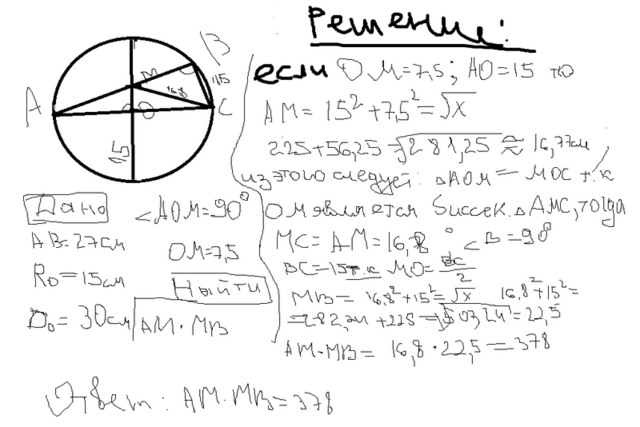 Решение:
B
M
4,5
16,8
A
O
C
15
если OM=7,5; AO=15 то
AM= 15²+7,5²=√x
225+56,25=√281,25 ≈ 16,77см
из этого следует: △AOM=MOC т.к
OM является биссек. △AMC, тогда
MC=AM=16,8 ∠B=90°
BC=15т.к MO=BC/2
MB= 16,8²+15²=√x 16,8²+15²=
=282,24+225=√507,24=22,5
AM·MB= 16,8·22,5=378
Дано
∠AOM=90°
AB=27см OM=7,5
Ro=15см Ныйти
Do=30см AM·MB
Ответ: AM·MB=378